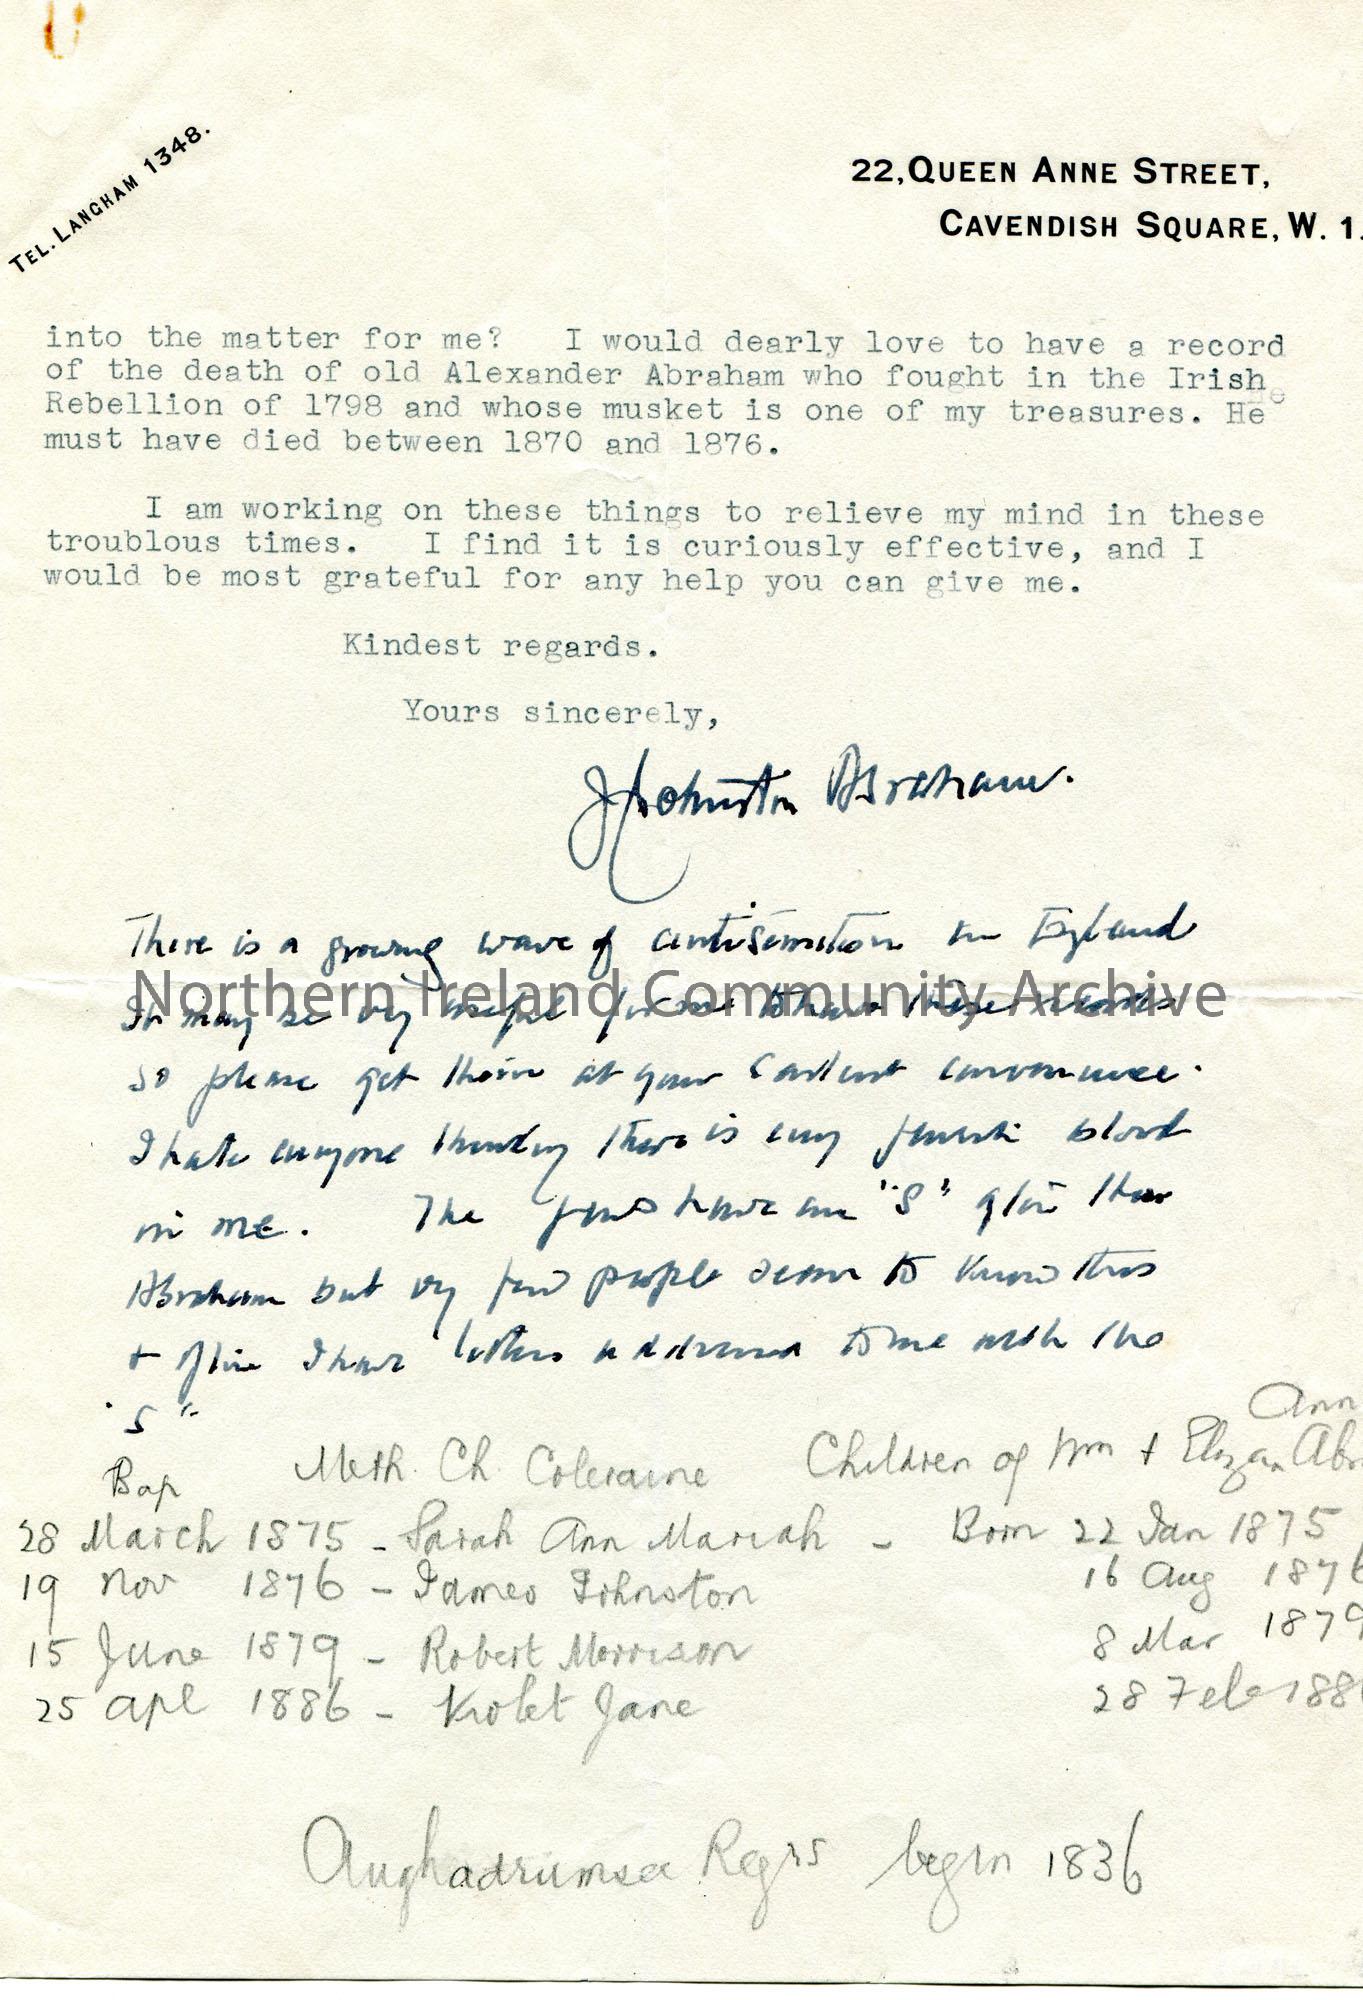 TEL. LANGHAM 1348.
22, QUEEN ANNE STREET,
CAVENDISH SQUARE, W. 1.
into the matter for me? I would dearly love to have a record
of the death of old Alexander Abraham who fought in the Irish
Rebellion of 1798 and whose musket is one of my treasures. He
must have died between 1870 and 1876.
I am working on these things to relieve my mind in these
troublous times. I find it is curiously effective, and I
would be most grateful for any help you can give me.
Kindest regards.
Yours sincerely,
J Johnston Abraham.
There is a growing wave of antisemitism in England
Northern Ireland Community Archive
It may be very useful for me to have these records
so please get them at your earliest convenience.
I hate anyone thinking there is any Jewish blood
in me. The Jews have an "S" after their
Abraham but very few people seem to know this
+ often I have letters addressed to me with the
"S"
Bap Meth. Ch. Coleraine Children of Wm + Eliza Ann
28 March 1875 - Sarah Ann Mariah - Born 22 Jan 1875
19 Nov 1876 - James Johnston 16 Aug 1876
15 June 1879 - Robert Morrison 8 Mar 1879
25 Apl 1886 - Violet Jane 28 Feb
Aughadrumsee Regrs begin 1836